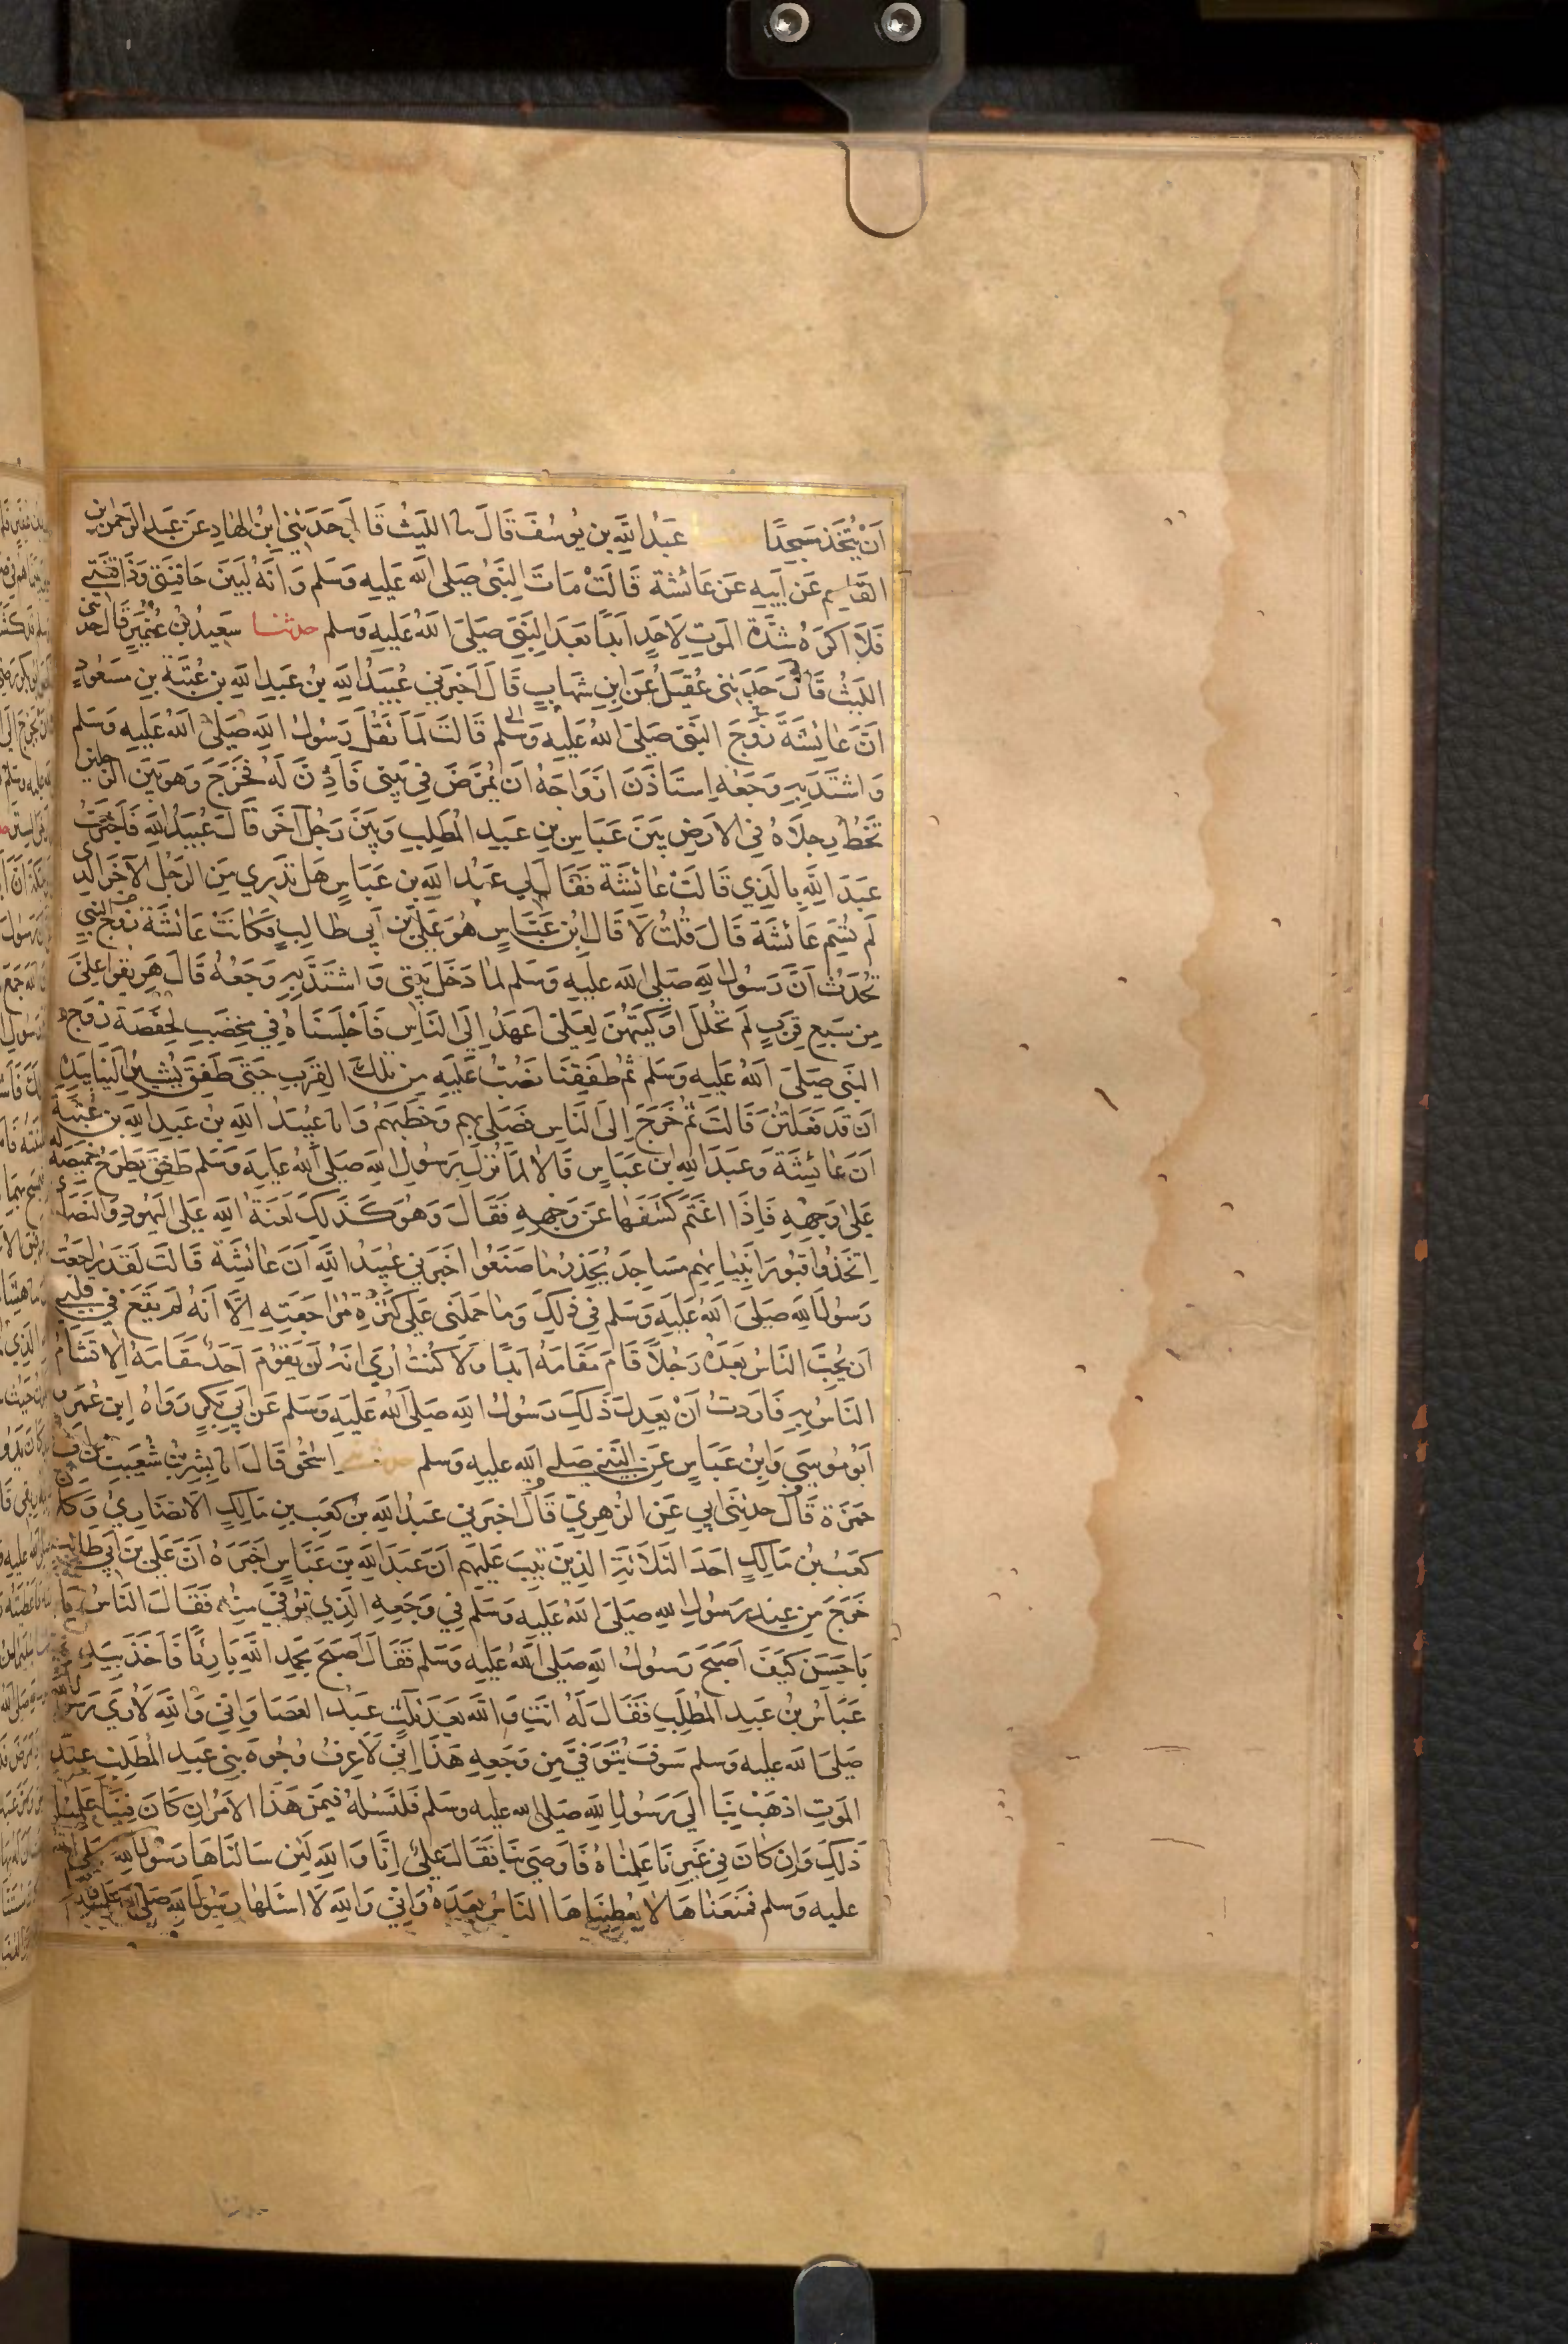 اَنْ يُتَّخَذَ مَسْجِدًا عَبْدُ اللَّهِ بن يُوسُفَ قَالَ نا اللَّيْثُ قَالَ حَدَثَنِي ابْنُ الهَادِ عَن عَبدِ الرَحمنِ بنِ
القَاسِمِ عَن اَبِيهِ عَن عَائشة قَالَتْ مَاتَ النَّبِيُ صَلى اللّٰه عَليهِ وَسَلم وَانَهُ لَبَيْنَ حَاقِنَتِي وَذَاقِنَتِي
فَلَا اَكرَهُ شِدَّةَ المَوتِ لِاَحَدٍ اَبَدًا بَعدَ النَّبِيِ صَلىَ اللهُ عَليهِ وَسَلم حدثنا سَعِيدُ بْنُ عُفَيرٍ قَالَ حدثنى
الليَثُ قَالَ حَدَثَنِى عُقَيلُ عَن ابنِ شهَابٍ قَالَ اَخبَرَنِي عُبَيدُ اللّهِ بنُ عَبدِ اللّهِ بنِ عُتبَة بنِ مَسعُودٍ
اَنَّ عَائِشَةَ زَوجَ النَبِيّ صَلىَ اللهُ عَليهِ وَسَلم قَالتَ لَمَا ثَقُلَ رَسُولُ اللهِ صَلىَ اللهُ عَليهِ وَسَلم
وَاشتَدَّ بِهِ وَجَعُه اِستَاذَنَ ازوَاجَهُ ان يُمَرَّضَ فِي بَيتِى فَاَذِنَّ لَهُ فخَرَجَ وَهوَ بَيَن الرجلين
تَخُطُ رِجلَاهُ فِي الاَرضِ بَينَ عَبَاسِ بنِ عَبدِ المُطَلِبِ وَبَينَ رَجُل آخَر قَالَ عُبيدُ اللّهِ فَاَخبَرَتُ
عَبدَ اللّهِ بِالَذِي قَالَتْ عَائِشَة فَقَالَ لِي عَبدُ اللّهِ بن عَبَاسٍ هَل تَدرِي مَنِ الرَجُل الآخَر الذِى
لَم تُسَمِ عَائشَةَ قَالَ قُلتُ لَا قَالَ ابْن عَبَّاسٍ هُوَ عَلِيُ بن اَبِي طالِبٍ فكَانَتْ عَائشَةُ زَوج النَبِيِ
تُحَدِثُ اَنَّ رَسُولَ اللّهِ صَلى الله عَليَهِ وَسَلم لمَا دَخَلَ بَيتِى وَاشتَدَّ بِهِ وَجَعُهُ قَالَ هَرِيقُوا عَلىَ
مِن سَبعِ قِرَبٍ لَم تُحلَل اَوكِيَتُهُن لَعَلىّ اَعهَدُ اِلَى النَاسِ فَاَجلَسنَاهُ فِي مِخضَبٍ لحِفصَة زَوجَ
النَبِى صَلىَ اللهُ عَليَهِ وَسَلم ثُم طَفِقنَا نَصُبُ عَليهِ مِن تلك القِرَبِ حَتىَ طَفِقَ يُشِيرُ اِلَينَا بِيَدِهِ
اَن قَد فَعَلتُنَ قَالَت ثُم خَرَجَ اِلىَ النَاسِ فَصَلى بِهم وَخَطَبَهُم وَانا عُبَيدُ اللهِ بن عَبدِ اللّهِ بنِ عُتبَة
اَنَ عَائِشَةَ وَعَبدَ اللّهِ ابن عَبَاسٍ قَالَا لمَا نَزَلَ بِرَسُولِ اللهِ صَلىَ اللهُ عَليهِ وَسَلم طَفِقَ يَطرَحُ خَمِيصَة له
عَلى وَجهِهِ فَاِذَا اغتَمَّ كَشَفهَا عَن وَجهِهِ فَقَالَ وَهُوَ كَذَلِكَ لَعنَةُ اللهِ عَلىَ اليَهُودِ وَالنَصَارى
اِتَخَذُوا قُبُورَ اَنبِيَائِهِم مَسَاجِدَ يُحَذِرُ مَا صَنَعُوا اَخبَرَنِي عُبَيدُ اللهِ اَنَ عَائِشَة قَالَت لَقَد رَاجَعتُ
رَسُولَ اللهِ صَلىَ اللهُ عَليَهِ وَسَلم فِي ذَلِكَ وَمَا حَمَلَنى عَلى كَثرَةِ مُرَاجَعَتِهِ اِلَّا اَنَهُ لَم يَقَع فِي قَلبِي
اَن يُحِبَّ النَاسُ بَعدَهُ رَجُلاً قَامَ مَقَامَهُ اَبَدًا وَلَا كُنتُ اُرَى اَنَهُ لَن يَقوُمَ اَحَدُ مَقَامَهُ اِلا تَشَامَ
النَاسُ بِهِ فَاَردتُ اَنْ يَعدِلَ ذَلِكَ رَسُولُ اللهِ صَلىَ اللهُ عَليَهِ وَسَلم عَن اَبِي بَكرٍ رَوَاهُ ابن عُمَر و
اَبُو مُوسَى وَابنُ عَبَاسٍ عَنِ النَبِي صَلى اللهُ عَليهِ وَسَلم حدثنى اِسحٰقُ قَالَ انا بِشرِ بنُ شُعَيبِ بن ابى
حَمزَة قَالَ حَدثَنِى اَبِي عَن الزُهرِيِ قَالَ اَخبَرَنِي عَبدُ اللهِ بنُ كَعبِ بنِ مَالِكٍ الاَنصَارِيُ وَكانَ
كعَبُ بنُ مَالِكٍ اَحدَ الثَلَاثَةِ الذِينَ تِيبَ عَليَهِم اَنَ عَبدَ اللهِ بنَ عَبَاسٍ اَخبَرَهُ اَنَّ عَلىَ بنَ اَبِي طالبٍ
خَرَجَ مِن عِندِ رَسُولِ اللهِ صَلىَ اللهُ عَليَهِ وَسَلم فِي وَجَعِهِ الَذِي تُوُفِّيَ مِنهُ فَقَالَ النَاسُ يَا
بَا حَسَنٍ كَيفَ اَصبَحَ رَسُولُ اللهِ صَلىَ اللهُ عَليَهِ وَسَلم فَقَالَ اَصبَحَ بِحَمدِ اللهِ بَارِئًا فَاَخَذَ بِيَدِهِ
عَبَاسُ بنُ عَبدِ المُطَلِبِ فَقَالَ لَهُ اَنتَ وَاللهِ بَعدَ ثَلَثٍ عَبدُ العَصَا وَاِنِي وَاللهِ لَاَرَى رسول
صَلىَ الله عليه وَسلم سَوفَ يُتَوَفَّى مِن وَجَعِهِ هَذَا اِنِي لَاَعرِفُ وُجُوهَ بَنِي عَبدِ المُطَلِبِ عِندَ
المَوتِ اذهَبْ بِنَا اِلَى رَسُولِ اللهِ صَلى الله عليه وسلم فَلنَسئَلهُ فِيمَن هَذَا الاَمرُ اِن كَانَ فِينَا عَلِمنَا
ذَلِكَ وَاِن كَانَ فِي غَيرِنَا عَلِمنَاهُ فَاَوصَى بِنَا فَقَالَ عَلِيُ اِنَّا وَاللهِ لَئِن سَالنَاهَا رَسُولَ اللهِ صلى الله
عليه وَسلم فمَنَعَنَاهَا لَا يُعطِينَاهَا النَاسُ بَعدَهُ وَاِنِي وَاللهِ لَا اَسئَلهَا رَسُولَ اللهِ صَلىَ الله عليه وسلم